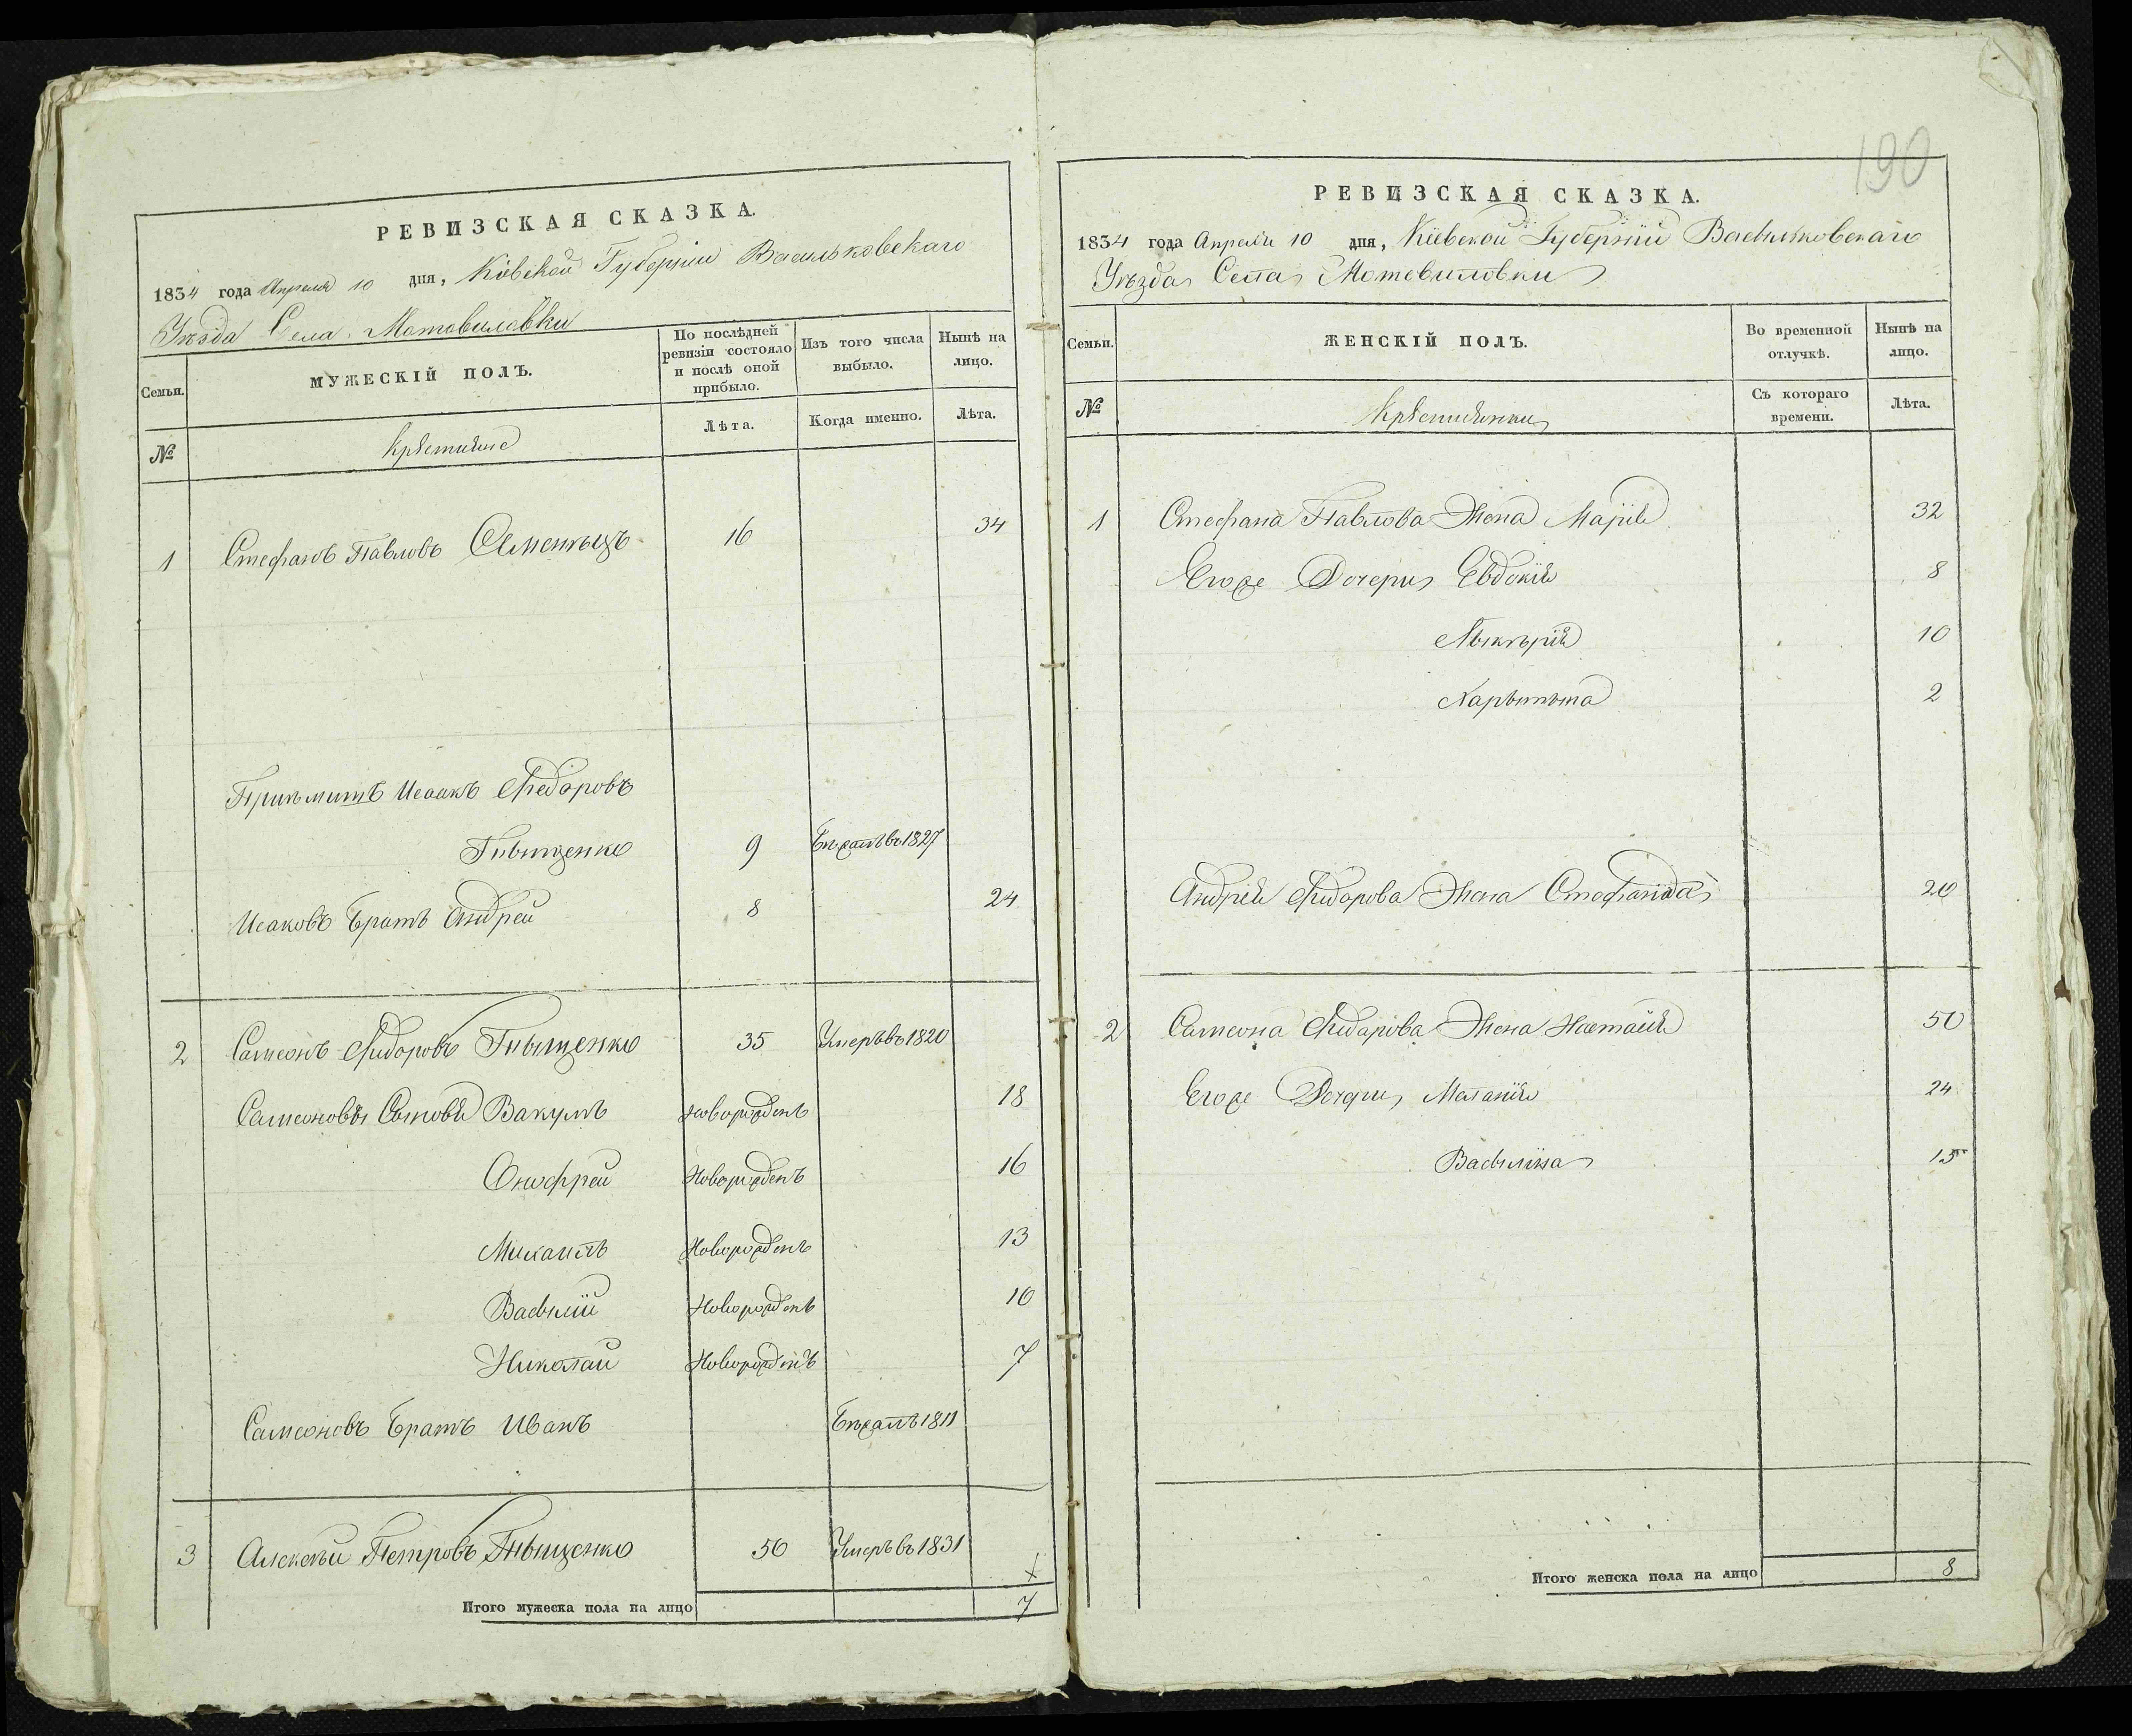 190
РЕВИЗСКАЯ СКАЗКА.
1834 года Апреля 10 дня, Кіевской Губерніи Васильковскаго
Уѣзда Села Мотовиловки
Семьи.
МУЖЕСКІЙ ПОЛЪ.
По послѣдней ревизіи состояло и послѣ оной прибыло.
Изъ того числа выбыло.
Нынѣ на лицо.
№
Крѣстьяне
Лѣта.
Когда именно.
Лѣта.
1 Стефанъ Павловъ 16 34
Исаакъ Федоровъ
9 1827
Исаковъ братъ Андрей 8 24
2 Самсонъ Федоровъ 35 Умеръ въ 1820
Самсоновы Сынове Вакумъ Новорожденъ 18
Онофрей Новорожденъ 16
Михаилъ Новорожденъ 13
Васылій Новорожденъ 10
Николай Новорожденъ 7
Самсоновъ братъ Иванъ Бѣжалъ 1811
3 Алексѣй Петровъ 50 Умеръ въ 1831
Итого мужеска пола на лицо 7
РЕВИЗСКАЯ СКАЗКА.
1834 года Апреля 10 дня, Кіевской Губерніи Васыльковскаго
Уѣзда Села Мотевиловки
Семьи.
ЖЕНСКІЙ ПОЛЪ.
Во временной отлучкѣ.
Нынѣ на лицо.
№
Крѣстьянки
Съ котораго времени.
Лѣта.
1 Стефана Павлова Жена Марія 32
Егоже Дочери Евдокія 8
Лыкѣрія 10
Харытына 2
Андрея Федорова Жена Стефанида 20
2 Самсона Федорова Жена Настасія 50
Егоже Дочери Меланія 24
Васылина 15
Итого женска пола на лицо 8